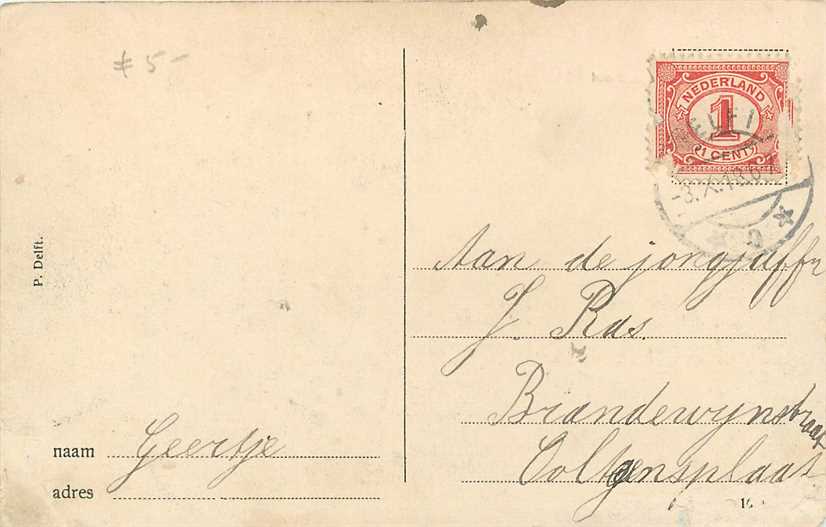 # 5 -
NEDERLAND
1
1 CENT
-3.X.
P. Delft.
Aan de jongjuffr
J. Ras.
Brandewynstraat
Colynsplaat
naam Geertje
adres